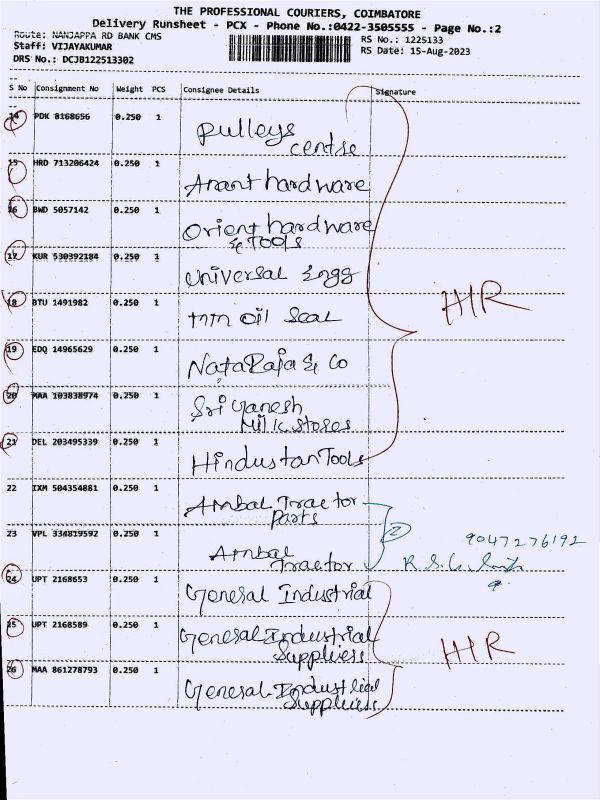 THE PROFESSIONAL COURIERS, COIMBATORE
Delivery Runsheet - PCX - Phone No.:0422-3505555 - Page No.:2
Route: NANJAPPA RD BANK CMS
Staff: VIJAYAKUMAR
DRS No.: DCJB122513302
RS No.: 1225133
RS Date: 15-Aug-2023
S No Consignment No Weight PCS Consignee Details Signature
14 PDK 8168656 0.250 1 Pulleys
centre
15 HRD 713206424 0.250 1 Anant hardware
16 BWD 5057142 0.250 1 Orient hardware
& Tools
17 KUR 530392184 0.250 1 Universal Engg
18 BTU 1491982 0.250 1 mm oil Seal
HR
19 EDQ 14965629 0.250 1 Nataraja & Co
20 MAA 103838974 0.250 1 Sri Ganesh
Milk stores
21 DEL 203495339 0.250 1 Hindustan Tools
22 IXM 504354881 0.250 1 Ambal Tractor
Parts
23 VPL 334819592 0.250 1 Ambal
Tractor
2
9047276192
24 UPT 2168653 0.250 1 General Industrial
25 UPT 2168589 0.250 1 General Industrial
Suppliers
HR
26 MAA 861278793 0.250 1 General Industrial
Suppliers